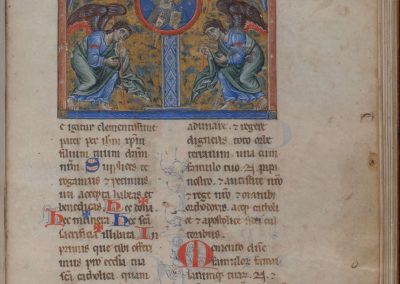 e igitur clementissime
pater per ihm xpm
filium tuum dnm
nrm Supplices te
rogamus et petimus
uti accepta habeas et
benedicas hec dona
hec munera hec sca
sacrificia illibata In
primis que tibi offeri
mus pro ecclia tua
sca catholica quam
adunare et regere
digneris toto orbe
terrarum una cum
famulo tuo N papa
nostro et antistite nro
et rege nro et omnibus
orthodoxis
et apostolice fidei cul
toribus
Memento dne
famulorum famu
larumque tuarum N et